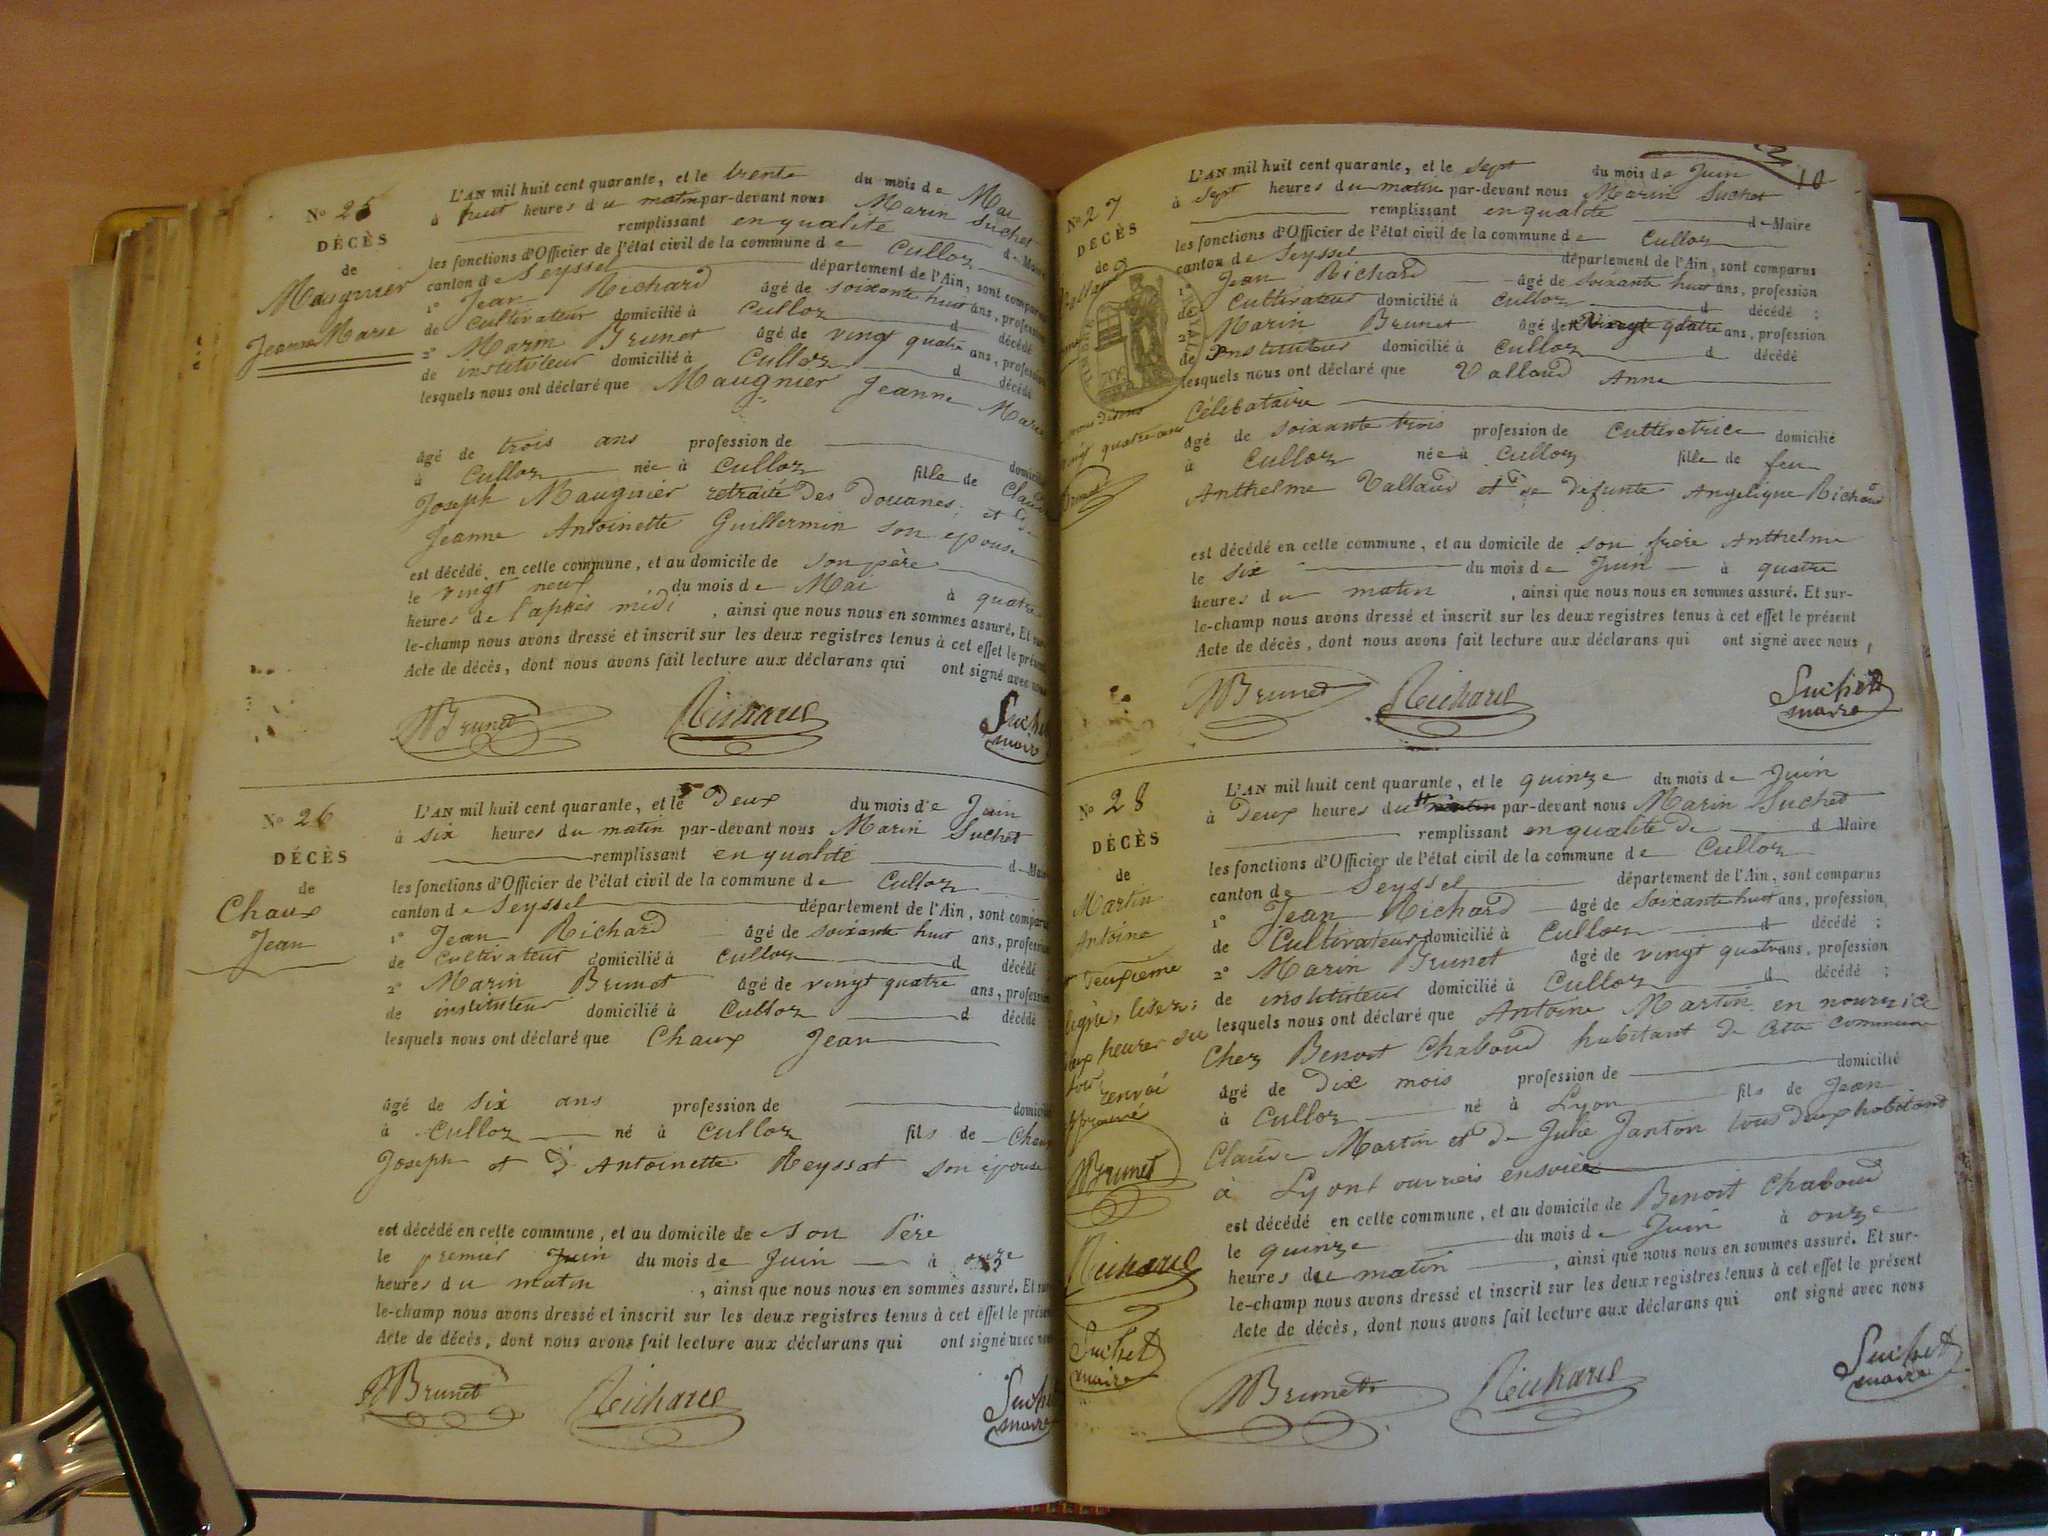 N° 25
DÉCÈS
de
Maugnier
Jeanne Marie
L'AN mil huit cent quarante, et le trente du mois de Mai
à huit heures du matin par-devant nous Marin Suchet
remplissant en qualité d Maire
les fonctions d'Officier de l'état civil de la commune de Culloz
canton de Seyssel département de l'Ain, sont comparus
1° Jean Richard âgé de soixante huit ans, profession
de Cultivateur domicilié à Culloz d décédé
2° Marin Brunet âgé de vingt quatre ans, profession
de instituteur domicilié à Culloz d décédé
lesquels nous ont déclaré que Maugnier Jeanne Marie
âgé de trois ans profession de domicilié
à Culloz née à Culloz fille de Claude
Joseph Maugnier retraité des Douanes, et de
Jeanne Antoinette Guillermin son épouse
est décédé en cette commune, et au domicile de son père
le vingt neuf du mois de Mai à quatre
heures de l'après midi, ainsi que nous nous en sommes assuré. Et sur-
le-champ nous avons dressé et inscrit sur les deux registres tenus à cet effet le présent
Acte de décès, dont nous avons fait lecture aux déclarans qui ont signé avec nous
MBrunet Richard Suchet
maire
N° 26
DÉCÈS
de
Chaux
Jean
L'AN mil huit cent quarante, et le Deux du mois de Juin
à six heures du matin par-devant nous Marin Suchet
remplissant en qualité d Maire
les fonctions d'Officier de l'état civil de la commune de Culloz
canton de Seyssel département de l'Ain, sont comparus
1° Jean Richard âgé de soixante huit ans, profession
de Cultivateur domicilié à Culloz d décédé
2° Marin Brunet âgé de vingt quatre ans, profession
de instituteur domicilié à Culloz d décédé
lesquels nous ont déclaré que Chaux Jean
âgé de six ans profession de domicilié
à Culloz né à Culloz fils de Chaux
Joseph et d' Antoinette Reyssat son épouse
est décédé en cette commune, et au domicile de son Père
le premier Juin du mois de Juin à onze
heures du matin, ainsi que nous nous en sommes assuré. Et sur-
le-champ nous avons dressé et inscrit sur les deux registres tenus à cet effet le présent
Acte de décès, dont nous avons fait lecture aux déclarans qui ont signé avec nous
MBrunet Richard Suchet
maire
10
N° 27
DÉCÈS
de
Vallaud
nous disons
vingt quatre ans
Brunet
L'AN mil huit cent quarante, et le sept du mois de Juin
à sept heures du matin par-devant nous Marin Suchet
remplissant en qualité d Maire
les fonctions d'Officier de l'état civil de la commune de Culloz
canton de Seyssel département de l'Ain, sont comparus
1° Jean Richard âgé de soixante huit ans, profession
de Cultivateur domicilié à Culloz d décédé ;
2° Marin Brunet âgé de vingt quatre ans, profession
de instituteur domicilié à Culloz d décédé
lesquels nous ont déclaré que Vallaud Anne
Célibataire
âgé de soixante trois profession de Cultivatrice domicilié
à Culloz née à Culloz fille de feu
Anthelme Vallaud et de défunte Angelique Richard
est décédé en cette commune, et au domicile de son frère Anthelme
le six du mois de Juin à quatre
heures du matin, ainsi que nous nous en sommes assuré. Et sur-
le-champ nous avons dressé et inscrit sur les deux registres tenus à cet effet le présent
Acte de décès, dont nous avons fait lecture aux déclarans qui ont signé avec nous,
MBrunet Richard Suchet
maire
N° 28
DÉCÈS
de
Martin
Antoine
Deuxième
ligne, lisez:
deux heures du
soir
renvoi
approuvé
MBrunet
Richard
Suchet
maire
L'AN mil huit cent quarante, et le quinze du mois de Juin
à Deux heures du matin par-devant nous Marin Suchet
remplissant en qualité de d Maire
les fonctions d'Officier de l'état civil de la commune de Culloz
canton de Seyssel département de l'Ain, sont comparus
1° Jean Richard âgé de soixante huit ans, profession
de Cultivateur domicilié à Culloz d décédé ;
2° Marin Brunet âgé de vingt quatre ans, profession
de instituteur domicilié à Culloz d décédé ;
lesquels nous ont déclaré que Antoine Martin en nourrice
Chez Benoit Chaboud habitant de Cette Commune
âgé de Dix mois profession de domicilié
à Culloz né à Lyon fils de Jean
Claude Martin et de Julie Janton tous deux habitant
à Lyon ouvriers ensoie
est décédé en cette commune, et au domicile de Benoit Chaboud
le quinze du mois de Juin à onze
heures du matin, ainsi que nous nous en sommes assuré. Et sur-
le-champ nous avons dressé et inscrit sur les deux registres tenus à cet effet le présent
Acte de décès, dont nous avons fait lecture aux déclarans qui ont signé avec nous
MBrunet Richard Suchet
maire